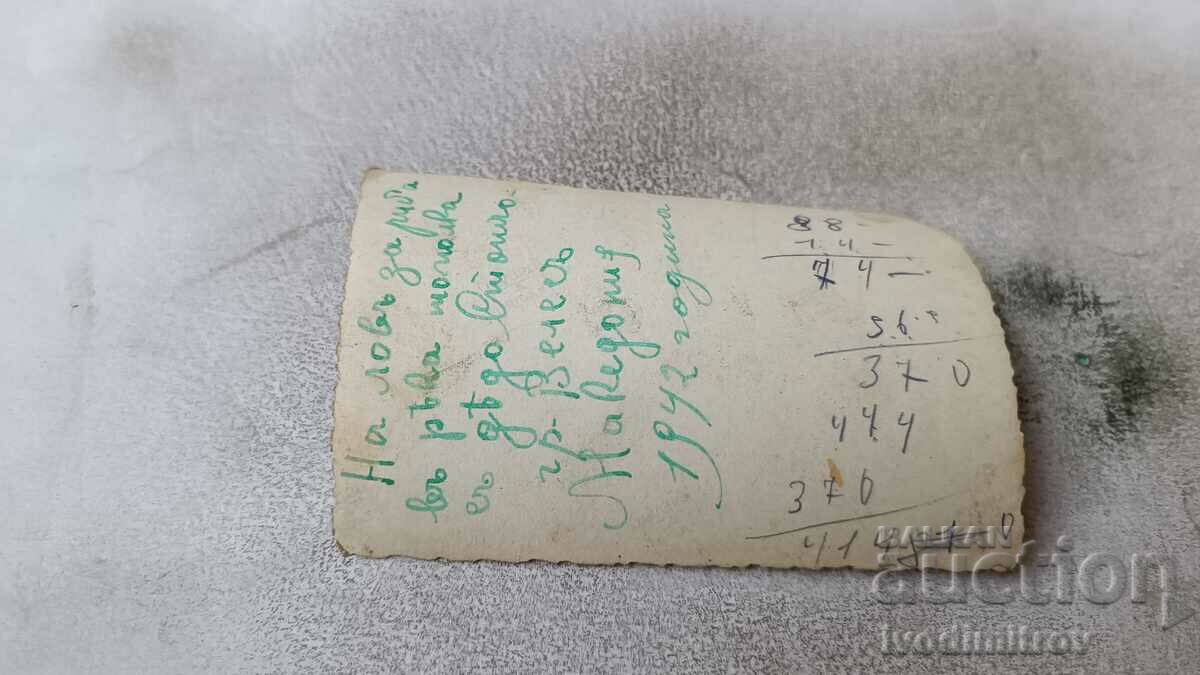 На ловъ за риба
въ рѣка тополка
съ дѣдо Стоичо.
гр. Велесъ
Македония
1942 година
88 -
14 -
74 -
56
370
474
370
414
BALKAN
auction
ivodimitrov